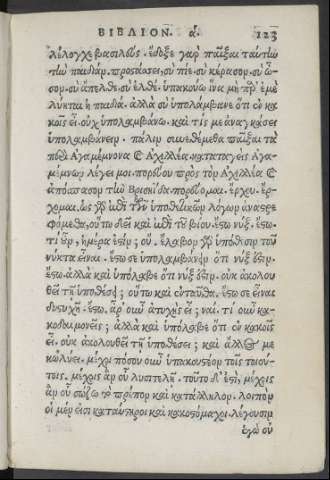 ΒΙΒΛΙΟΝ. ά. 123
λέλογχε βασιλεύς. ἔδοξε γὰρ παῖξαι ταύτην
τὴν παιδιάν. προστάσσει, σὺ πίε. σὺ κέρασον. σὺ ᾆ-
σον. σὺ ἄπελθε. σὺ ἐλθέ. ὑπακούω ἵνα μὴ παρ' ἐμὲ
λύηται ἡ παιδιά. ἀλλὰ σὺ ὑπολάμβανε ὅτι ἐν κα
κοῖς εἶ. οὐχ ὑπολαμβάνω. καὶ τίς με ἀναγκάσει
ὑπολαμβάνειν. πάλιν συνεθέμεθα παῖξαι τὰ
περὶ Ἀγαμέμνονα καὶ Ἀχιλλέα. καταταγεὶς Ἀγα-
μέμνων λέγει μοι. πορεύου πρὸς τὸν Ἀχιλλέα καὶ
ἀπόσπασον τὴν Βρισηίδα. πορεύομαι. ἔρχου. ἔρ-
χομαι. ὡς γὰρ ἐπὶ τῶν ὑποθετικῶν λόγων ἀναστρε
φόμεθα, οὕτω δεῖ καὶ ἐπὶ τοῦ βίου. ἔστω νύξ. ἔστω.
τί οὖν, ἡμέρα ἐστίν; οὔ. ἔλαβον γὰρ ὑπόθεσιν τοῦ
νύκτα εἶναι. ἔστω σε ὑπολαμβάνειν ὅτι νύξ ἐστιν.
ἔστω. ἀλλὰ καὶ ὑπόλαβε ὅτι νύξ ἐστιν. οὐκ ἀκολου
θεῖ τῇ ὑποθέσει; οὕτω καὶ ἐνταῦθα. ἔστω σε εἶναι
δυστυχῆ. ἔστω. ἆρ' οὖν ἀτυχὴς εἶ; ναί. τί οὖν κα-
κοδαιμονεῖς; ἀλλὰ καὶ ὑπόλαβε ὅτι ἐν κακοῖς
εἶ. οὐκ ἀκολουθεῖ τῇ ὑποθέσει; καὶ ἄλλος με
κωλύει. μέχρι πόσου οὖν ὑπακουστέον τοῖς τοιού-
τοις. μέχρις ἂν οὗ λυσιτελῇ. τοῦτο δ' ἐστὶ, μέχρις
ἂν οὗ σώζω τὸ πρέπον καὶ κατάλληλον. λοιπὸν
οἱ μέν εἰσι κατάπικροι καὶ κακοστόμαχοι. λέγουσιν
ἐγὼ οὐ